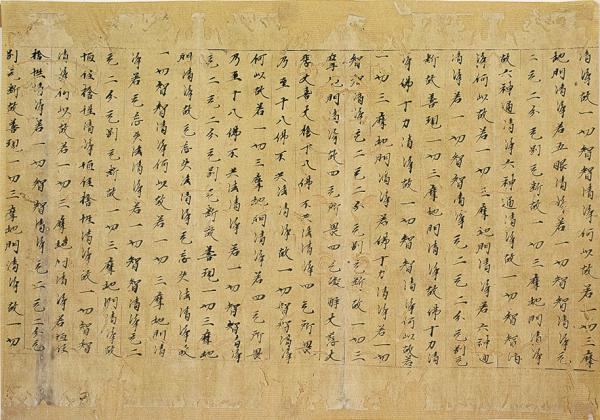 清淨故一切智智清淨何以故若一切三摩
地門清淨若五眼清淨若一切智智清淨无
二无二分无別无断故一切三摩地門清淨
故六神通清淨六神通清淨故一切智智清
淨何以故若一切三摩地門清淨若六神通
清淨若一切智智清淨无二无二分无別无
断故善現一切三摩地門清淨故佛十力清
淨佛十力清淨故一切智智清淨何以故若
一切三摩地門清淨若佛十力清淨若一切
智智清淨无二无二分无別无断故一切三
摩地門清淨故四无所畏四无礙解大慈大
悲大喜大捨十八佛不共法清淨四无所畏
乃至十八佛不共法清淨故一切智智清淨
何以故若一切三摩地門清淨若四无所畏
乃至十八佛不共法清淨若一切智智清淨
无二无二分无別无断故善現一切三摩地
門清淨故无忘失法清淨无忘失法清淨故
一切智智清淨何以故若一切三摩地門清
淨若无忘失法清淨若一切智智清淨无二
无二分无別无断故一切三摩地門清淨故
恒住捨性清淨恒住捨性清淨故一切智智
清淨何以故若一切三摩地門清淨若恒住
捨性清淨若一切智智清淨无二无二分无
別无断故善現一切三摩地門清淨故一切